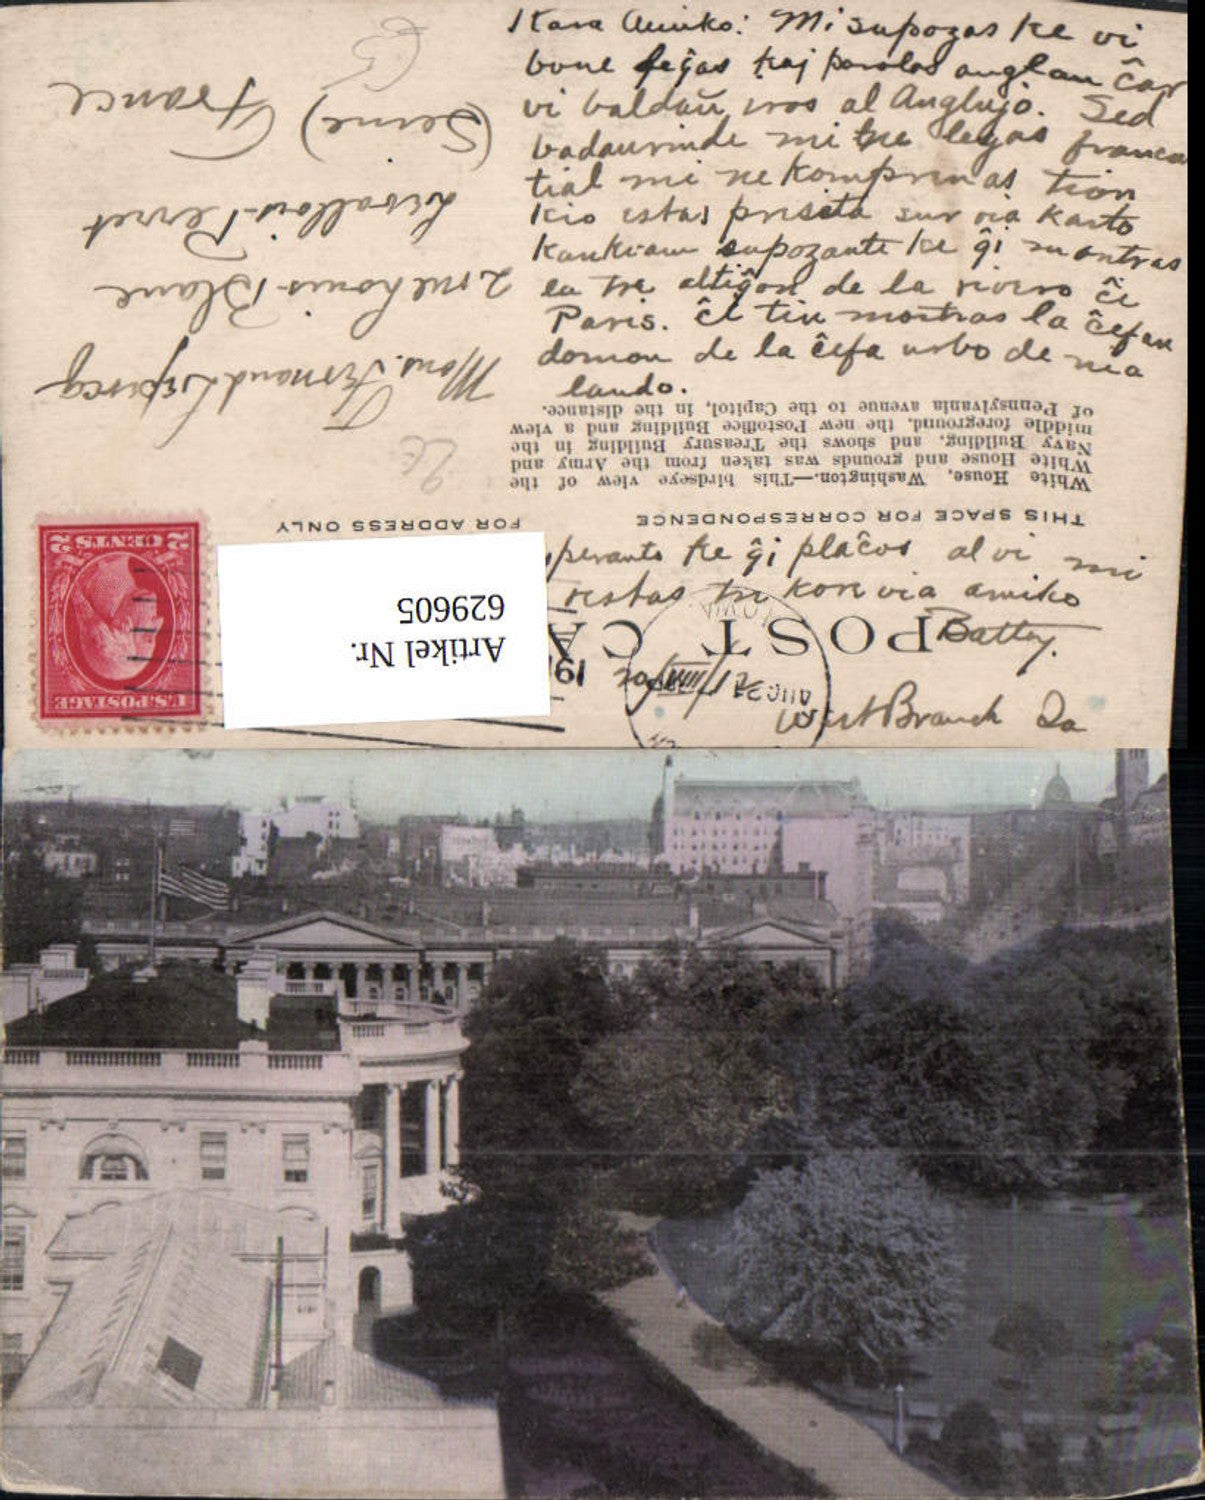 Kara Amiko: Mi supozas ke vi
bone legas kaj parolas anglan ĉar
vi baldaŭ iros al Anglujo. Sed
bedaurinde mi ne legas franca
tial mi ne komprenas tion
kio estas presita sur via karto
kankiam supozante ke ĝi montras
la altiĝon de la rivero ĉe
Paris. Ĉi tiu montras la ĉefan
domon de la ĉefa urbo de mia
lando.
White House, Washington.—This birdseye view of the
White House and grounds was taken from the Army and
Navy Building, and shows the Treasury Building in the
middle foreground, the new Postoffice Building and a view
of Pennsylvania avenue to the Capitol, in the distance.
THIS SPACE FOR CORRESPONDENCE
FOR ADDRESS ONLY
perante ke ĝi plaĉos al vi mi
restas tre kore via amiko
Batty.
West Branch Ia
POST CA
AUG 21
Mons. Fernand
Blanc
Levallois-Perret
(Seine) France
U.S. POSTAGE
2 CENTS 2
Artikel Nr.
629605